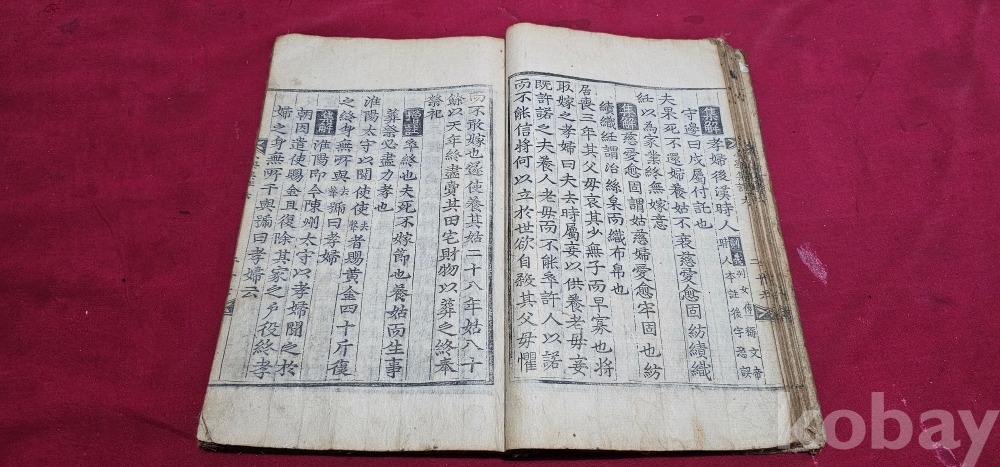 集解孝婦後漢時人
列女傳稱文帝
時人本註後字恐誤
守邊曰戍屬付託也
夫果死不還婦養姑不衰慈愛愈固紡績織
紝以為家業終無嫁意
集解慈愛愈固謂姑慈婦愛愈牢固也紡
績織紝謂治絲枲而織布帛也
居喪三年其父母哀其少無子而早寡也將
取嫁之孝婦曰夫去時屬妾以供養老母妾
既許諾之夫養人老母而不能卒許人以諾
而不能信將何以立於世欲自殺其父母懼
而不敢嫁也遂使養其姑二十八年姑八十
餘以天年終盡賣其田宅財物以葬之終奉
祭祀
增註卒終也夫死不嫁節也養姑而生事
葬祭必盡力孝也
淮陽太守以聞使使去聲者賜黃金四十斤復
之終身無所與去聲號曰孝婦
集解淮陽即今陳州太守以孝婦聞之於
朝因遣使賜金且復除其家之戶役終孝
婦之身無所干與號曰孝婦云
kobay